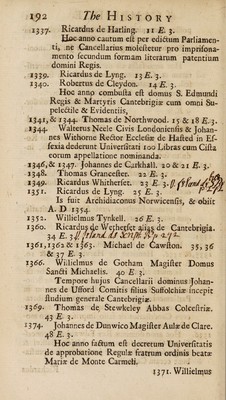 192 The HISTORY
1337. Ricardus de Harling. 11 E. 3.
Hoc anno cautum est per edictum Parliamen-
ti, ne Cancellarius molestetur pro imprisona-
mento secundum formam literarum patentium
domini Regis.
1339. Ricardus de Lyng. 13 E. 3.
1340. Robertus de Cleydon. 14 E. 3.
Hoc anno combusta est domus S. Edmundi
Regis & Martyris Cantebrigiæ cum omni Su-
pelectile & Evidentiis,
1341, & 1344. Thomas de Northwood. 15 & 18 E. 3.
1344. Walterus Neele Civis Londoniensis & Johan-
nes Withorne Rector Ecclesiæ de Halsted in Es-
sexia dederunt Universitati 100 Libras cum Cista
eorum appellatione nominanda.
1346, & 1347. Johannes de Crakhall. 20 & 21 E. 3.
1348. Thomas Grancester. 22 E. 3.
1349. Ricardus Whitherset. 23 E. 3.
1351. Ricardus de Lyng. 25 E. 3.
Is fuit Archidiaconus Norwicensis, & obiit
A. D 1354
1352. Willielmus Tynkell. 26 E. 3.
1360. Ricardus de Wetherset alias de Cantebrigia.
34 E. 3
1361, 1362 & 1363. Michael de Cawston. 35, 36
& 37 E. 3.
1366. Willielmus de Gotham Magister Domus
Sancti Michaelis. 40 E. 3.
Tempore hujus Cancellarii dominus Johan-
nes de Ufford Comitis filius Suffolchiæ incepit
studium generale Cantebrigiæ.
1369. Thomas de Stewkeley Abbas Colcestriæ.
43 E. 3.
1374. Johannes de Dunwico Magister Aulæ de Clare.
48 E. 3.
Hoc anno factum est decretum Universitatis
de approbatione Regulæ fratrum ordinis beatæ
Mariæ de Monte Carmeli.
1371. Willielmus